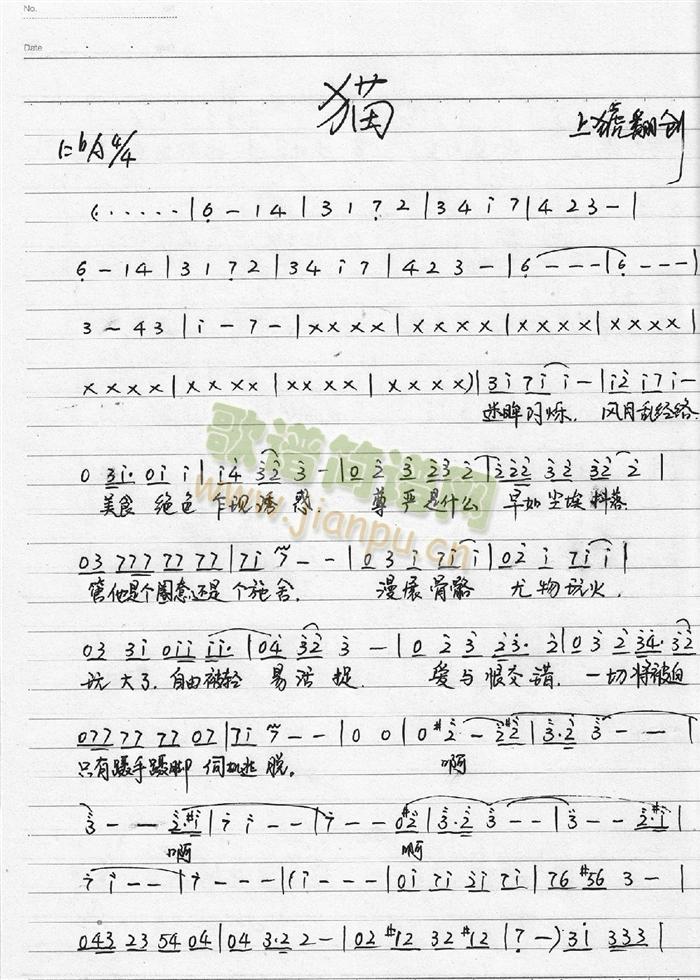 No.
Date
猫
上猇翻创
1=bA 4/4
(······|6 - 1 4|3 1 7 2|3 4 i 7|4 2 3 -|
6 - 1 4|3 1 7 2|3 4 i 7|4 2 3 -|6 - - -|6 - - -|
3 - 4 3|i - 7 -|x x x x|x x x x|x x x x|x x x x|
x x x x|x x x x|x x x x|x x x x)|3 i 7 i i -|i 2 i 7 i -
迷眸闪烁. 风月乱经络
歌谱简谱网
www.jianpu.cn
0 3 i· 0 i i|i 4 3 2 3 -|0 2 3 2 3 2|2 2 2 3 2 3 2 2|
美食 绝色 乍现诱惑. 尊严是什么 早如尘埃抖落
0 3 7 7 7 7 7 7 7|7 i 7 - -|0 3 i 7 i i|0 2 i 7 i i|
管他是个圈套还是个施舍. 漫展骨骼 尤物玩火.
0 3 3 i 0 i i i i·|0 4 3 2 3 -|0 2 3 2 3· 2|0 3 2 3 4· 3 2
玩大了. 自由被轻易活捉. 爱与恨交错. 一切将被迫
0 7 7 7 7 7 7 0 7|7 i 7 - -|0 0|0 #2 - 2 #2|3· 2 3 - -|
只有蹑手蹑脚 伺机逃脱. 啊
3 - - 2· #i|7 i - -|7 - - 0 #2|3· 2 3 - -|3 - - 2· #1|
啊 啊
7 i - -|7 - - -|i - - -|0 i 7 i 2 i 7 i|7 6 #5 6 3 -|
0 4 3 2 3 5 4 0 4|0 4 3· 2 2 -|0 2 #1 2 3 2 #1 2|(? -)3 i 3 3 3|